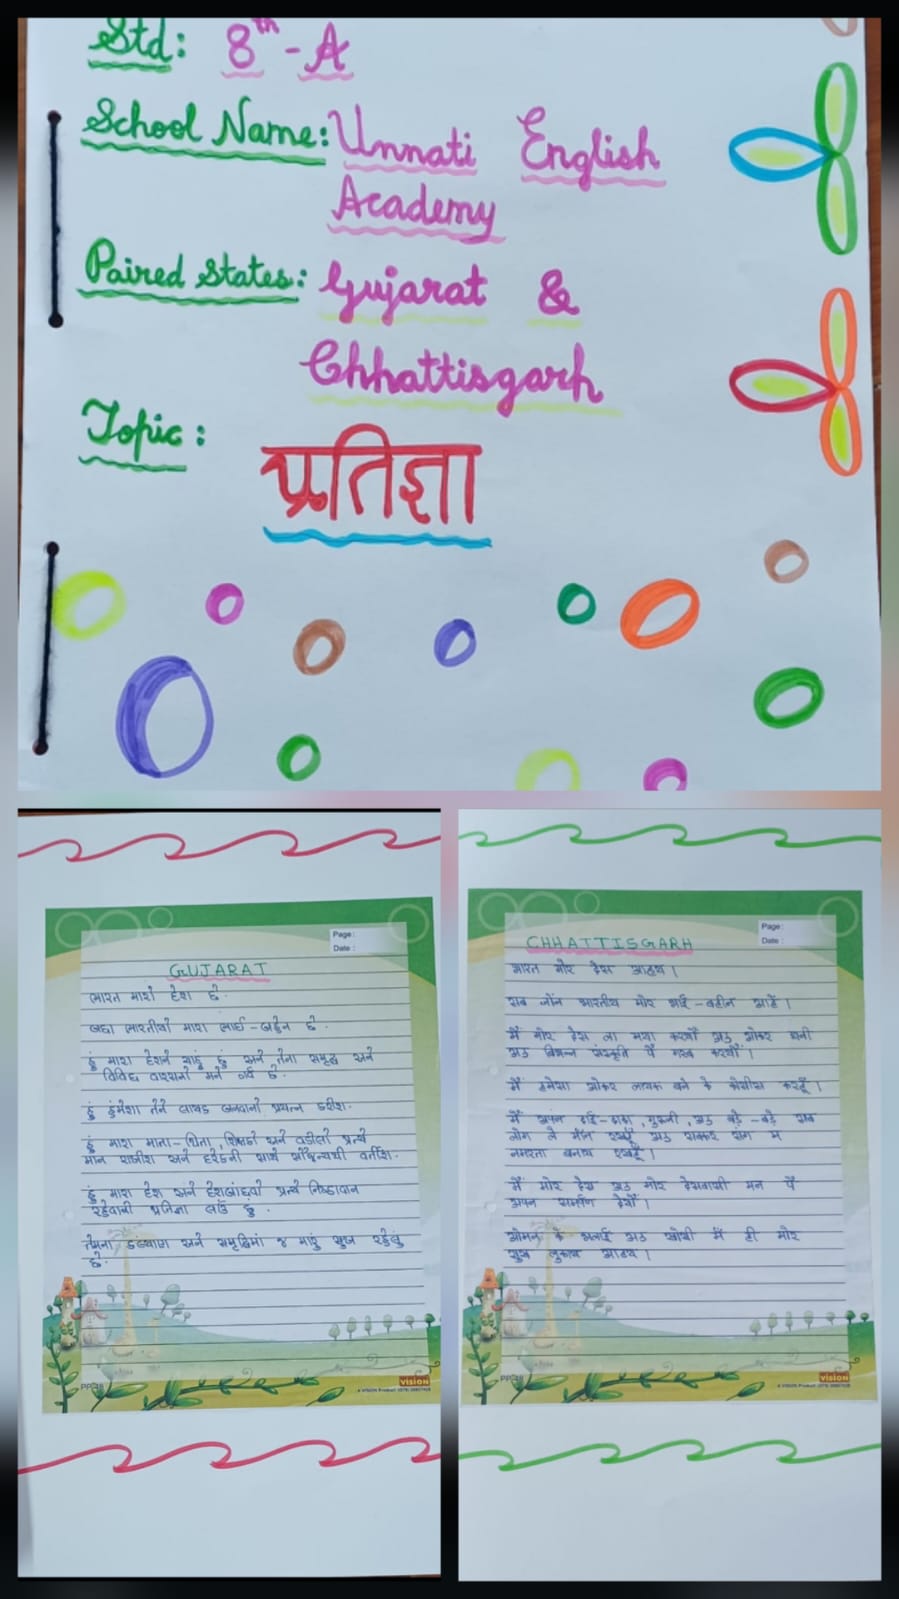 Std: 8th - A
School Name: Unnati English
Academy
Paired States: Gujarat &
Chhattisgarh
Topic:
प्रतिज्ञा
Page:
Date:
GUJARAT
ભારત મારો દેશ છે.
બધા ભારતીયો મારા ભાઈ-બહેન છે.
હું મારા દેશને ચાહું છું અને તેના સમૃદ્ધ અને
વિવિધ વારસાનો મને ગર્વ છે.
હું હંમેશા તેને લાયક બનવાનો પ્રયત્ન કરીશ.
હું મારા માતા-પિતા, શિક્ષકો અને વડીલો પ્રત્યે
માન રાખીશ અને દરેકની સાથે સૌજન્યથી વર્તીશ.
હું મારા દેશ અને દેશબાંધવો પ્રત્યે નિષ્ઠાવાન
રહેવાની પ્રતિજ્ઞા લઉં છું.
તેમના કલ્યાણ અને સમૃદ્ધિમાં જ મારું સુખ રહેલું
છે.
VISION
Page:
Date:
CHHATTISGARH
भारत मोर देस आहय।
सब जोन भारतीय मोर भाई-बहीन आहें।
मैं मोर देस ला मया करथौं अउ ओकर धनी
अउ विभिन्न संस्कृति पें गरब करथौं।
मैं हमेसा ओकर लायक बने के कोसीस करहूँ।
मैं अपन दाई-ददा, गुरुजी, अउ बड़े-बड़े सब
लोग ले मान रखहौं अउ सबकर संग म
नमरता बनाय रखहूँ।
मैं मोर देस अउ मोर देसवासी मन पें
अपन समर्पण देथौं।
ओमन के भलाई अउ खोसी में ही मोर
सुख लुकाय आहय।
VISION